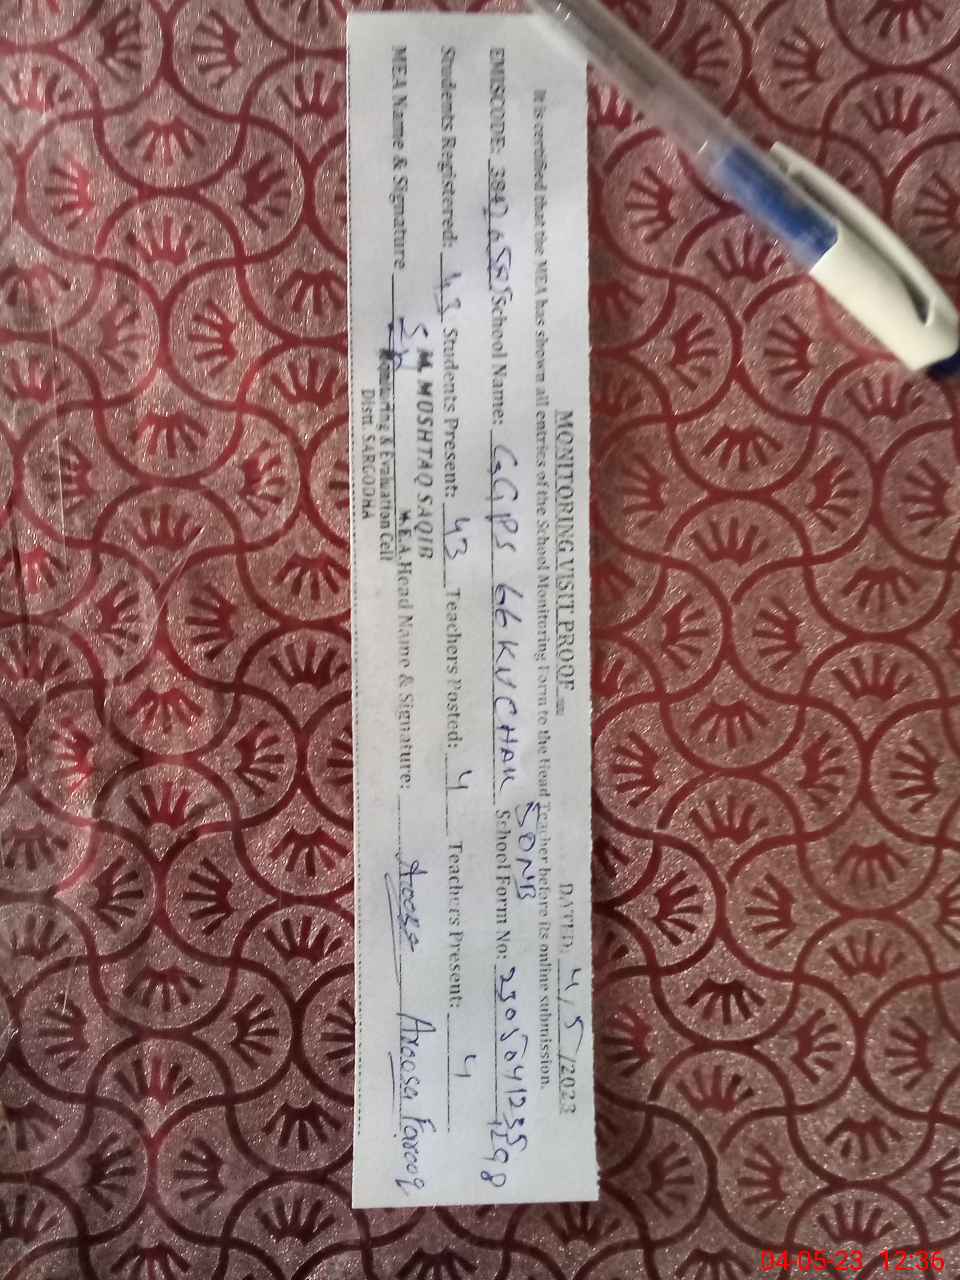 MONITORING VISIT PROOF
DATED: 4/5/2023
It is certified that the MEA has shown all entries of the School Monitoring Form to the Head Teacher before its online submission.
EMISCODE: School Name: GGPS 66 KV CHAK 50NB School Form No: 23050412
Students Registered: 43 Students Present: 43 Teachers Posted: 4 Teachers Present: 4
MEA Name & Signature Head Name & Signature: Aroosa Aroosa Farooq
M. MUSHTAQ SAQIB
M.E.A,
Monitoring & Evaluation Cell
Distt. SARGODHA
04-05-23 12:36